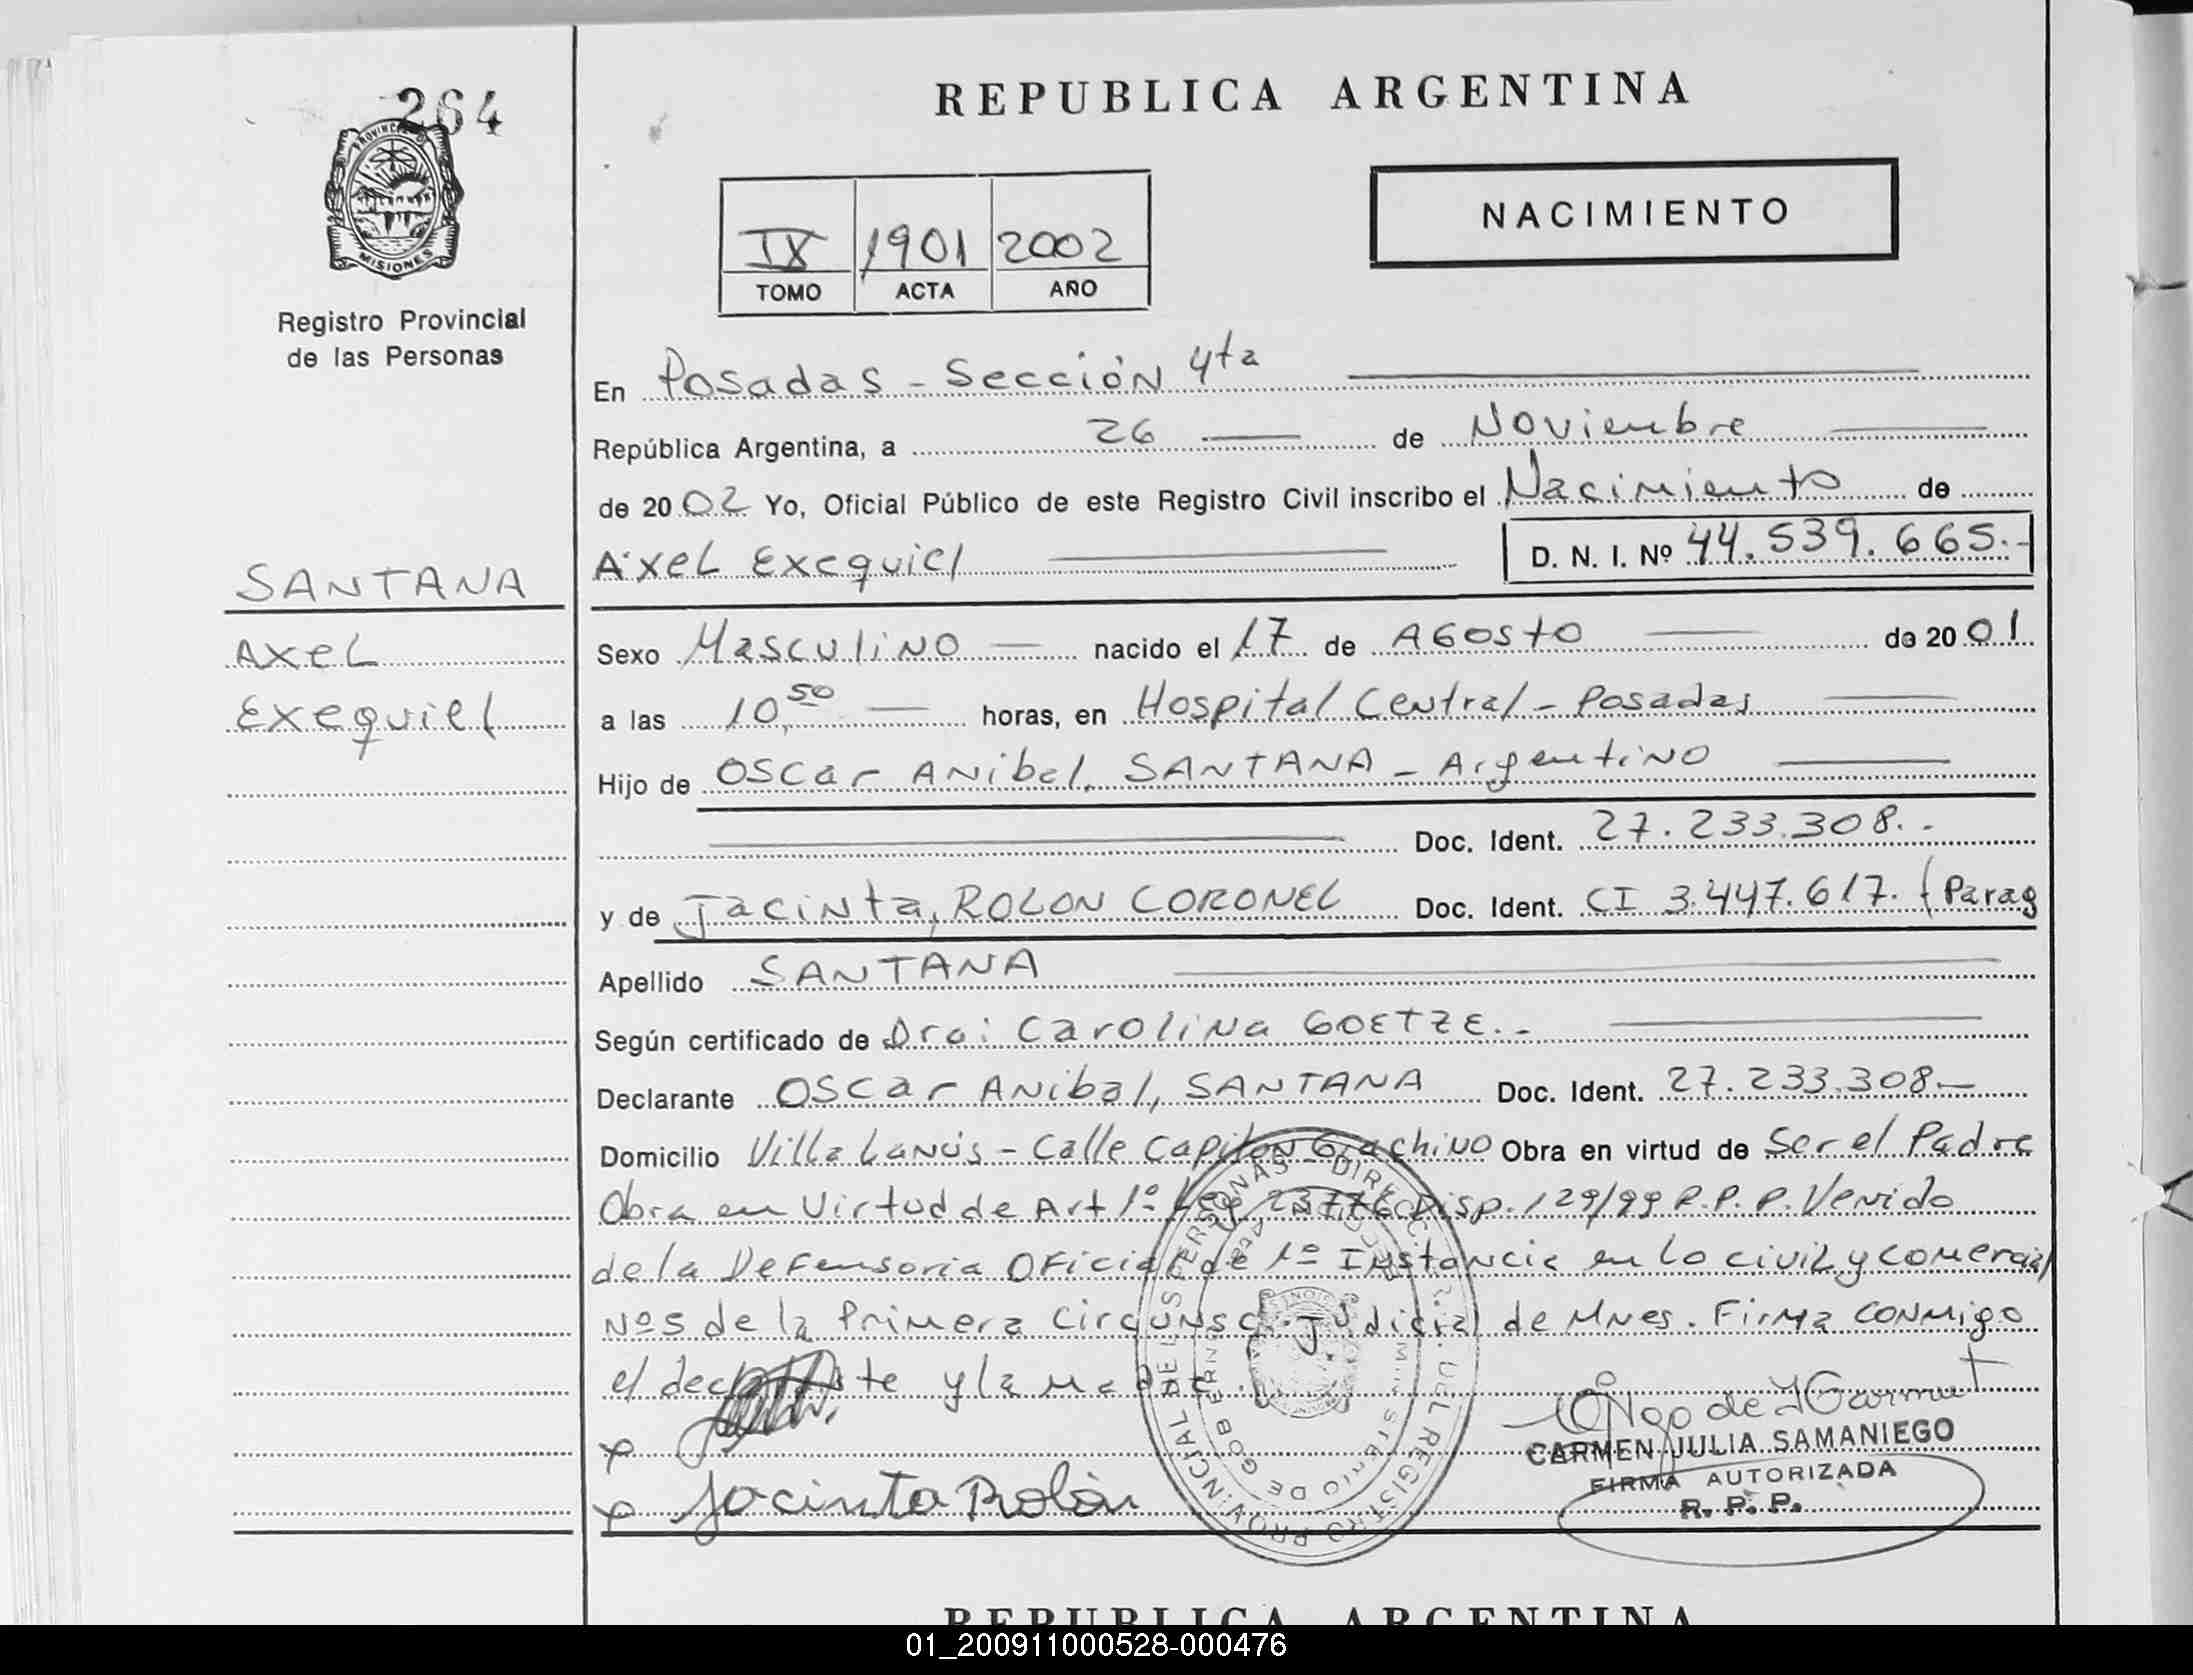 264
REPUBLICA ARGENTINA
PROVINCIA DE
MISIONES
Registro Provincial
de las Personas
NACIMIENTO
IX 1901 2002
TOMO ACTA AÑO
En Posadas - Sección 4ta
República Argentina, a 26 de Noviembre
de 2002 Yo, Oficial Público de este Registro Civil inscribo el Nacimiento de
Axel Exequiel D. N. I. Nº 44.539.665.-
SANTANA
Axel
Exequiel
Sexo Masculino nacido el 17 de Agosto de 2001
a las 10,50 horas, en Hospital Central - Posadas
Hijo de Oscar Anibal, SANTANA - Argentino
Doc. Ident. 27.233.308.-
y de Jacinta, ROLON CORONEL Doc. Ident. CI 3.447.617. (Parag
Apellido SANTANA
Según certificado de Dra: Carolina GOETZE.-
Declarante Oscar Anibal, SANTANA Doc. Ident. 27.233.308.-
Domicilio Villa Lanús - Calle Obra en virtud de Ser el Padre
Obra en Virtud de Art 1º Ley Disp. 129/99 R.P.P. Venido
de la Defensoria Oficial de 1º Instancia en lo civil y comercial
Nº5 de la Primera Circunsc. Judicial de Mnes. Firma conmigo
el y la Madre.
Jacinta Rolón
CARMEN JULIA SAMANIEGO
FIRMA AUTORIZADA
R. P. P.
REPUBLICA ARGENTINA
01_200911000528-000476